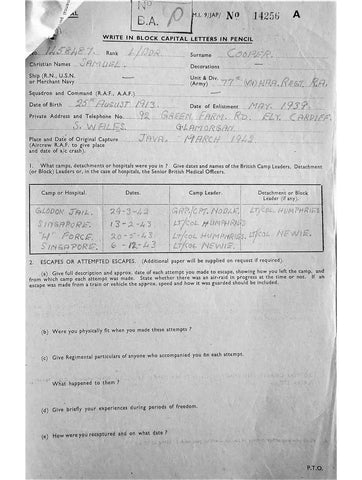 NO
B.A.
M.I. 9/JAP/ No 14256 A
WRITE IN BLOCK CAPITAL LETTERS IN PENCIL
No. Rank L/BDR Surname COOPER.
Christian Names SAMUEL. Decorations —
Ship (R.N., U.S.N. or Merchant Navy) Unit & Div. (Army) 77th REGT. R.A.
Squadron and Command (R.A.F., A.A.F.)
Date of Birth 25th AUGUST 1913. Date of Enlistment MAY. 1939.
Private Address and Telephone No. 92 GREEN FARM. RD. ELY. CARDIFF.
S. WALES. GLAMORGAN.
Place and Date of Original Capture JAVA. MARCH 1942
(Aircrew R.A.F. to give place
and date of a/c crash).
1. What camps, detachments or hospitals were you in ? Give dates and names of the British Camp Leaders, Detachment
(or Block) Leaders or, in the case of hospitals, the Senior British Medical Officers.
Camp or Hospital. Dates. Camp Leader. Detachment or Block Leader (if any).
GLODOK JAIL. 24-3-42 GRP/CPT. NOBLE. LT/COL HUMPHRIES
SINGAPORE. 13-2-43 LT/COL HUMPHRIES
"H" FORCE. 20-5-43 LT/COL HUMPHRIES. LT/COL NEWIE.
SINGAPORE. 6-12-43 LT/COL NEWIE.
2. ESCAPES OR ATTEMPTED ESCAPES. (Additional paper will be supplied on request if required).
(a) Give full description and approx. date of each attempt you made to escape, showing how you left the camp, and
from which camp each attempt was made. State whether there was an air-raid in progress at the time or not. If an
escape was made from a train or vehicle the approx. speed and how it was guarded should be included.
(b) Were you physically fit when you made these attempts ?
(c) Give Regimental particulars of anyone who accompanied you on each attempt.
What happened to them ?
(d) Give briefly your experiences during periods of freedom.
(e) How were you recaptured and on what date ?
P.T.O.